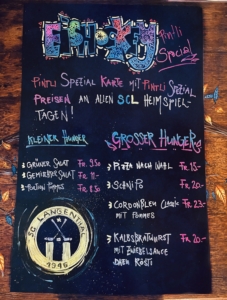 EISHOCKEY
Pintli
Spezial
PINTLI SPEZIAL KARTE MIT PINTLI SPEZIAL
PREISEN AN ALLEN SCL HEIMSPIEL-
TAGEN!
KLEINER HUNGER
GRÜNER SALAT Fr. 9.50
GEMISCHTER SALAT Fr. 11.-
PORTION POMMES Fr. 8.50
GROSSER HUNGER
PIZZA NACH WAHL Fr. 15.-
SCHNIPO Fr. 20.-
CORDONBLEU CLASSIC Fr. 23.-
MIT POMMES
KALBSBRATWURST Fr. 20.-
MIT ZWIEBELSAUCE
DAZU RÖSTI
SC LANGENTHAL
1946